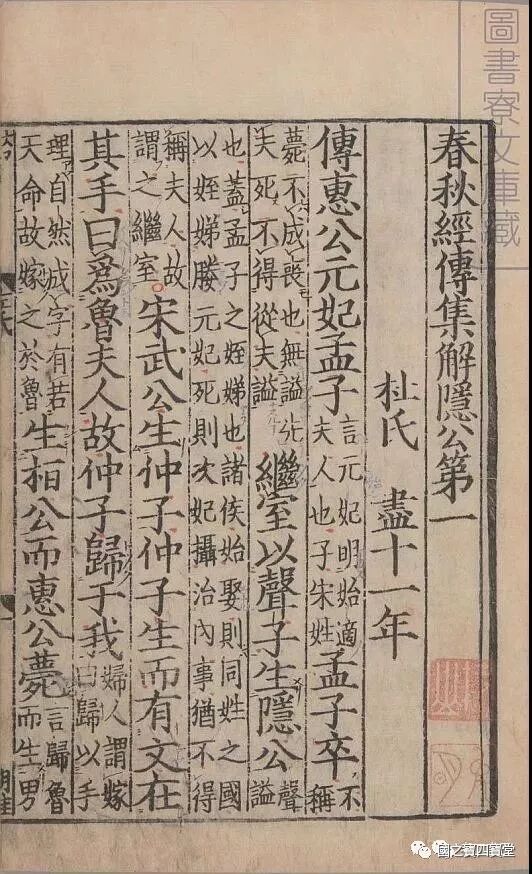 圖書寮文庫藏
春秋經傳集解隱公第一
杜氏 盡十一年
傳惠公元妃孟子言元妃明始適夫人也子宋姓孟子卒不稱
薨不成喪也無謚先夫死不得從夫謚繼室以聲子生隱公聲謚
也蓋孟子之姪娣也諸侯始娶則同姓之國以姪娣媵元妃死則次妃攝治內事猶不得
稱夫人故謂之繼室宋武公生仲子仲子生而有文在
其手曰爲魯夫人故仲子歸于我婦人謂嫁曰歸以手
理自然成字有若天命故嫁之於魯生桓公而惠公薨言歸魯而生男
國之寶四寶堂